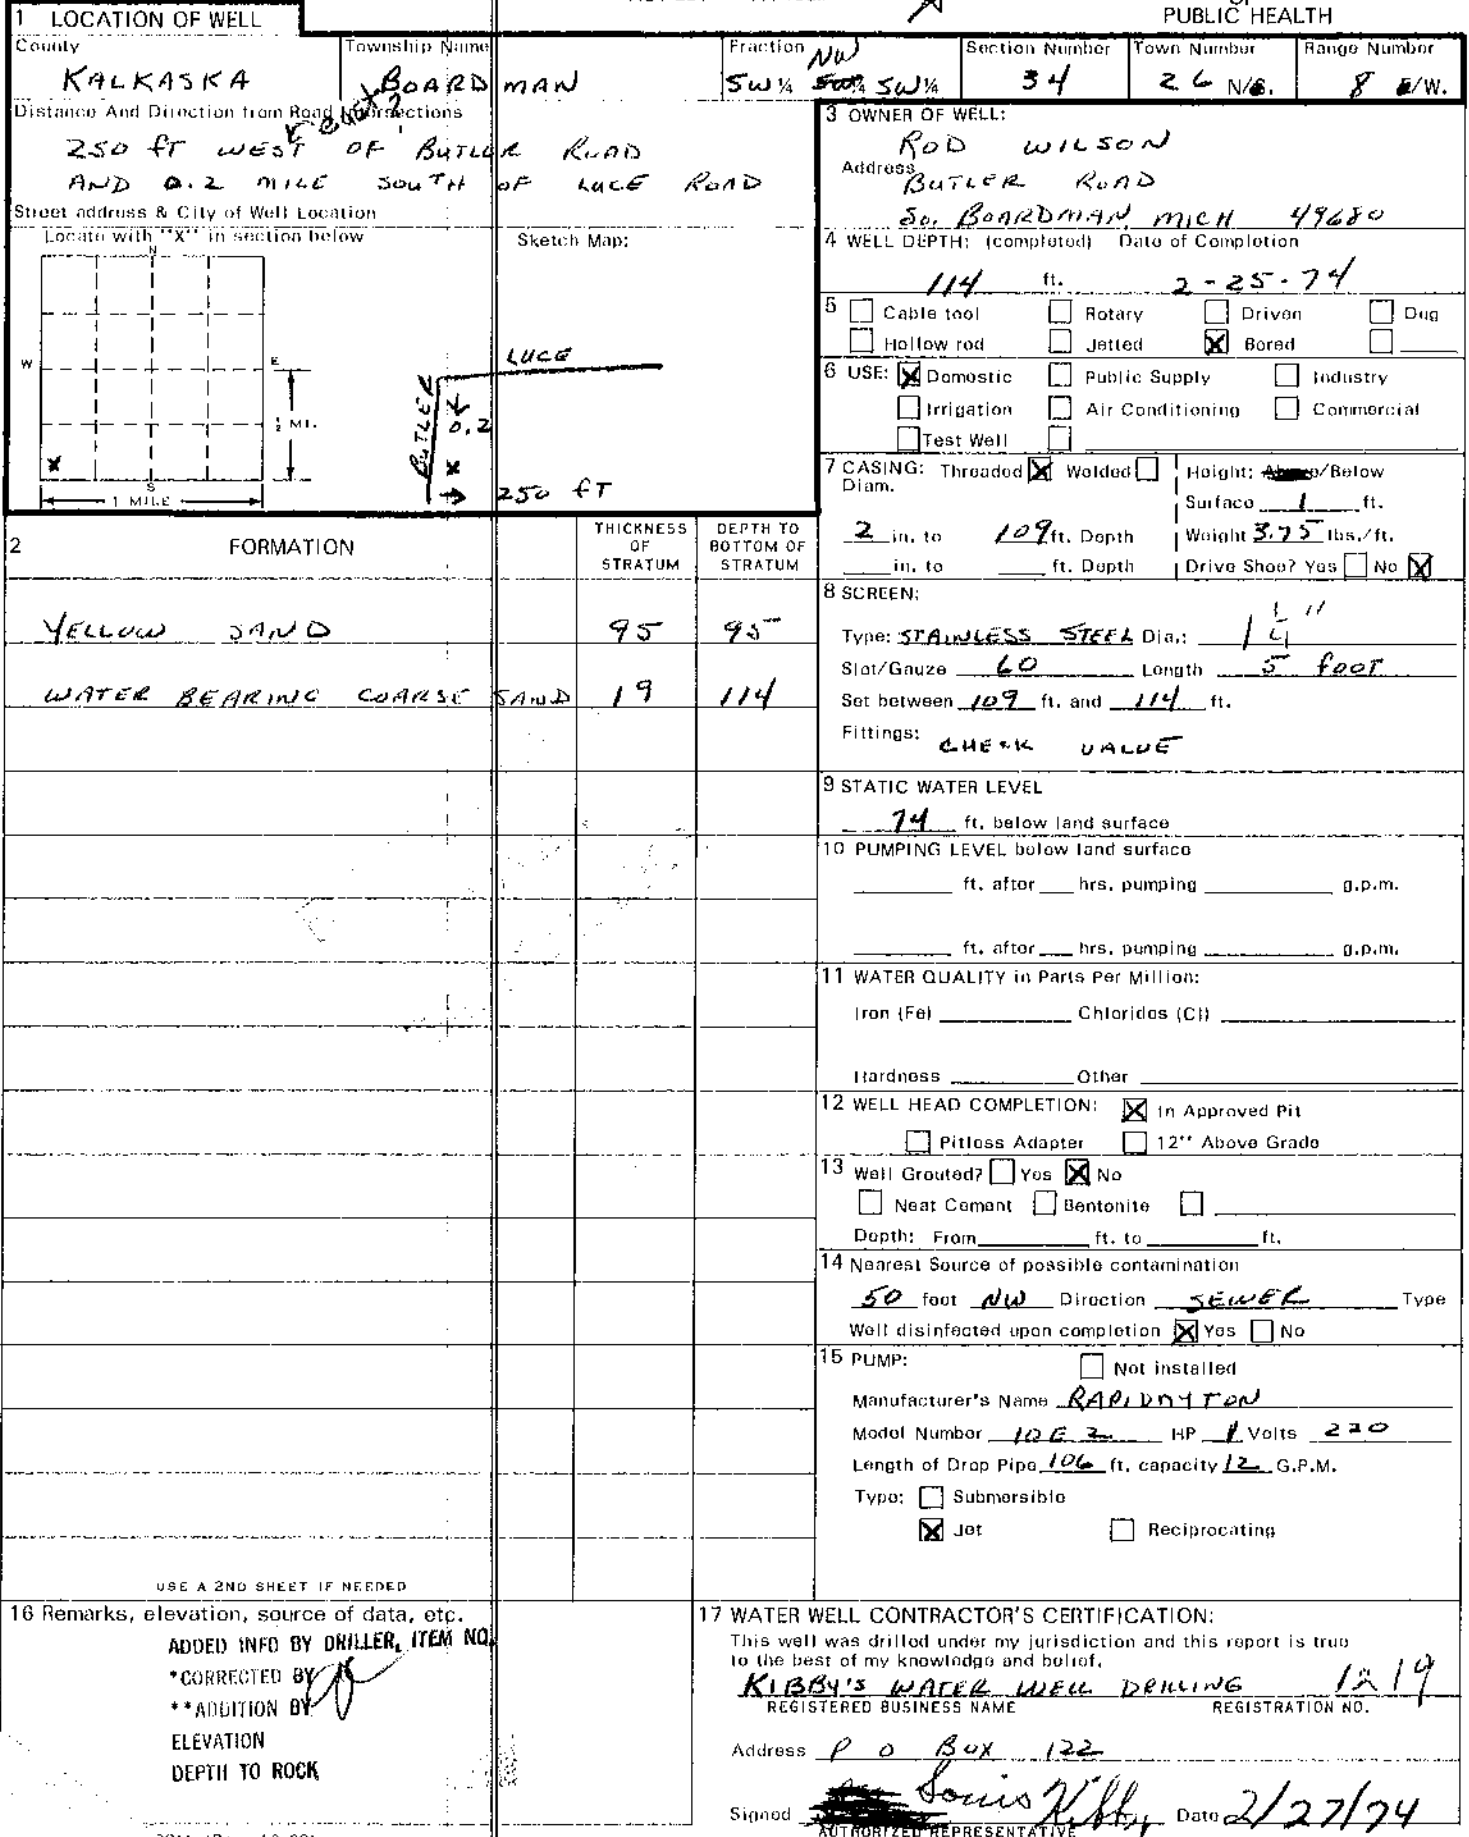 PUBLIC HEALTH
1 LOCATION OF WELL
County
Township Name
Fraction
Section Number
Town Number
Range Number
KALKASKA
BOARDMAN
NW
SW ¼ SW ¼
34
26 N/S.
8 E/W.
Distance And Direction from Road Intersections
250 fT WEST OF BUTLER ROAD
AND 0.2 MILE SOUTH OF LUCE ROAD
Street address & City of Well Location
Locate with "X" in section below
Sketch Map:
N
W
E
S
X
½ MI.
1 MILE
LUCE
BUTLER
0.2
X
250 fT
3 OWNER OF WELL:
ROD WILSON
Address
BUTLER ROAD
So. BOARDMAN, MICH 49680
4 WELL DEPTH: (completed) Date of Completion
114 ft. 2-25-74
5 Cable tool Rotary Driven Dug
Hollow rod Jetted X Bored
6 USE: X Domestic Public Supply Industry
Irrigation Air Conditioning Commercial
Test Well
7 CASING: Threaded X Welded Height: Above/Below
Diam.
Surface 1 ft.
2 in. to 109 ft. Depth Weight 3.75 lbs./ft.
in. to ft. Depth Drive Shoe? Yes No X
2 FORMATION
THICKNESS OF STRATUM
DEPTH TO BOTTOM OF STRATUM
YELLOW SAND 95 95
WATER BEARING COARSE SAND 19 114
8 SCREEN:
Type: STAINLESS STEEL Dia.: 1 1/4"
Slot/Gauze 60 Length 5 foot
Set between 109 ft. and 114 ft.
Fittings: CHECK VALUE
9 STATIC WATER LEVEL
74 ft. below land surface
10 PUMPING LEVEL below land surface
ft. after hrs. pumping g.p.m.
ft. after hrs. pumping g.p.m.
11 WATER QUALITY in Parts Per Million:
Iron (Fe) Chlorides (Cl)
Hardness Other
12 WELL HEAD COMPLETION: X In Approved Pit
Pitless Adapter 12" Above Grade
13 Well Grouted? Yes X No
Neat Cement Bentonite
Depth: From ft. to ft.
14 Nearest Source of possible contamination
50 feet NW Direction SEWER Type
Well disinfected upon completion X Yes No
15 PUMP: Not installed
Manufacturer's Name RAPIDAYTON
Model Number 10E2 HP 1 Volts 220
Length of Drop Pipe 106 ft. capacity 12 G.P.M.
Type: Submersible
X Jet Reciprocating
USE A 2ND SHEET IF NEEDED
16 Remarks, elevation, source of data, etc.
ADDED INFO BY DRILLER, ITEM NO.
*CORRECTED BY
**ADDITION BY
ELEVATION
DEPTH TO ROCK
17 WATER WELL CONTRACTOR'S CERTIFICATION:
This well was drilled under my jurisdiction and this report is true
to the best of my knowledge and belief.
KIBBY'S WATER WELL DRILLING 1219
REGISTERED BUSINESS NAME REGISTRATION NO.
Address P O BOX 122
Signed Louis Kibby Date 2/27/74
AUTHORIZED REPRESENTATIVE